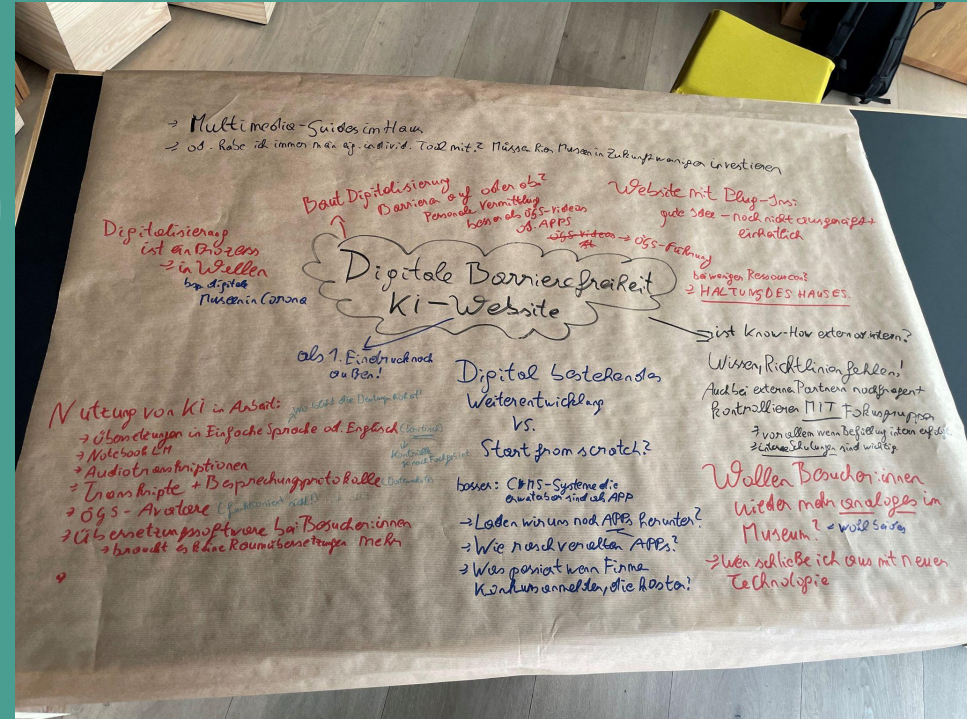 → Multimedia-Guides im Haus
→ od. habe ich immer mein eig. individ. Tool mit? Müssen hier Museen in Zukunft weniger investieren
Baut Digitalisierung
Barrieren auf oder ab?
Personale Vermittlung
besser als ÖGS-Videos
od. APPS
ÖGS-Videos → ÖGS-Führung
Website mit Plug-Ins:
gute Idee – noch nicht ausgereift +
einheitlich
bei weniger Ressourcen?
→ HALTUNG DES HAUSES.
Digitalisierung
ist ein Prozess
→ in Wellen
bsp. digitale
Museen in Corona
Digitale Barrierefreiheit
KI-Website
als 1. Eindruck nach
außen!
→ ist Know-How extern od. intern?
Wissen, Richtlinien fehlen!
Auch bei externen Partnern nachfragen +
kontrollieren MIT Fokusgruppen
→ vor allem wenn Befüllung intern erfolgt
→ interne Schulungen sind wichtig
Digital bestehendes
Weiterentwicklung
VS.
Start from scratch?
besser: CMS-Systeme die
erweiterbar sind als APP
→ Laden wir uns noch APPs herunter?
→ Wie rasch veralten APPs?
→ Was passiert wenn Firma
Konkurs anmeldet, die hosten?
Nutzung von KI in Arbeit:
→ Übersetzungen in Einfache Sprache od. Englisch
Kontrolle
→ Notebook LM
→ Audiotranskriptionen
→ Transkripte + Besprechungsprotokolle
→ ÖGS-Avatare (funktioniert nicht)
→ Übersetzungssoftware bei Besucher:innen
→ braucht es keine Raumübersetzungen mehr
?
Wollen Besucher:innen
wieder mehr analoges im
Museum?
→ Wen schließe ich aus mit neuer
Technologie